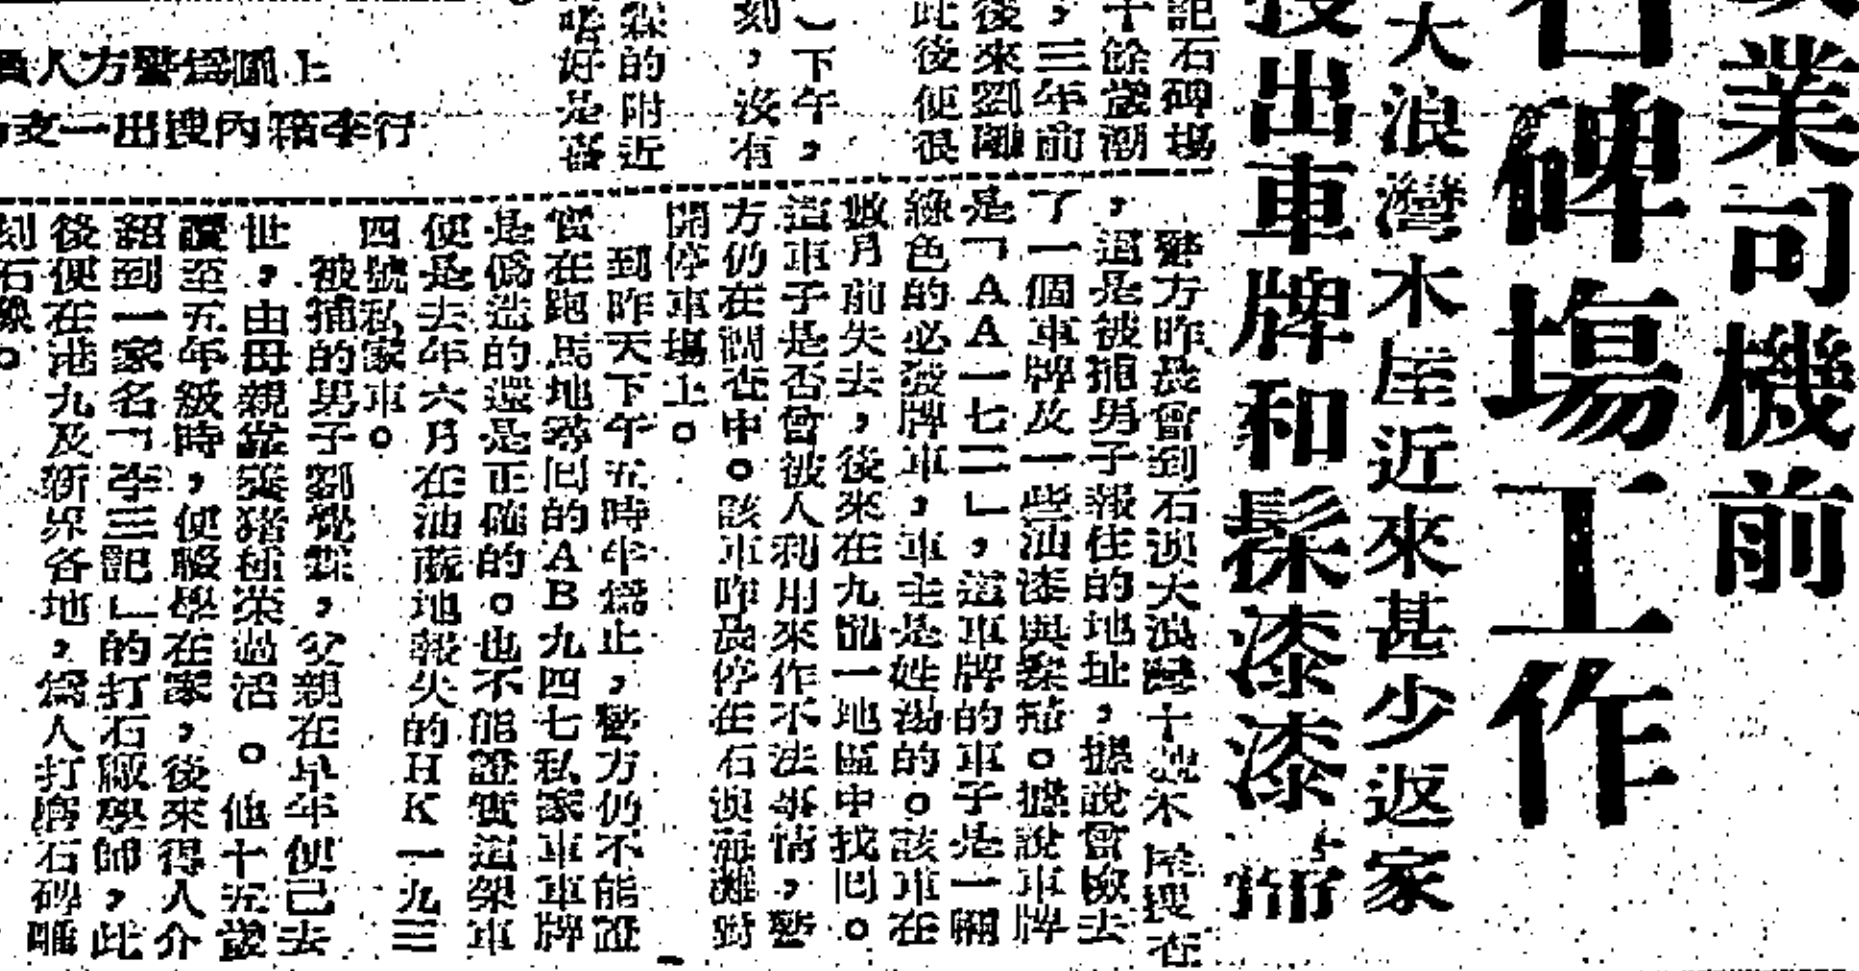 業司機前
石碑塲工作
大浪灣木屋近來甚少返家
搜出車牌和髹漆漆帚
記石碑塲
十餘歲潮
，三年前
後來劉
此後便很
）下午，
刻，沒有
霖的附近
嗜好是喜
上圖爲警方人員
行李箱內搜出一支
警方昨晨曾到石澳大浪灣十號木屋搜查
，這是被捕男子報住的地址，據說曾檢去
了一個車牌及一些油漆與漆掃。據說車牌
是「AA一七二」，這車牌的車子是一輛
綠色的必發牌車，車主是姓湯的。該車在
數月前失去，後來在九龍一地區中找回。
這車子是否曾被人利用來作不法事情，警
方仍在調查中。該車昨晨停在石澳海灘對
開停車塲上。
到昨天下午五時半爲止，警方仍不能證
實在跑馬地尋回的AB九四七私家車車牌
是僞造的還是正確的。也不能證實這架車
便是去年六月在油蔴地報失的HK一九三
四號私家車。
被捕的男子劉覺霖，父親在早年便已去
世，由母親靠養猪種菜過活。他十五歲
讀至五年級時，便輟學在家，後來得人介
紹到一家名「李三記」的打石廠學師，此
後便在港九及新界各地，爲人打磨石碑雕
刻石像。